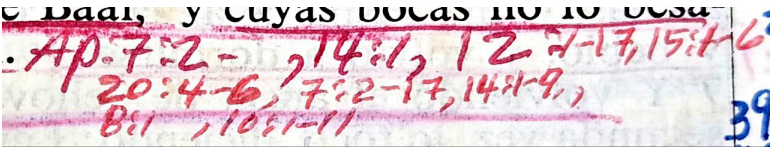 e Baal, y cuyas bocas no lo besa-
. Ap. 7:2- , 14:1, 12:1-17, 15:1-6
20:4-6, 7:2-17, 14:1-9,
8:1 , 10:1-11
39